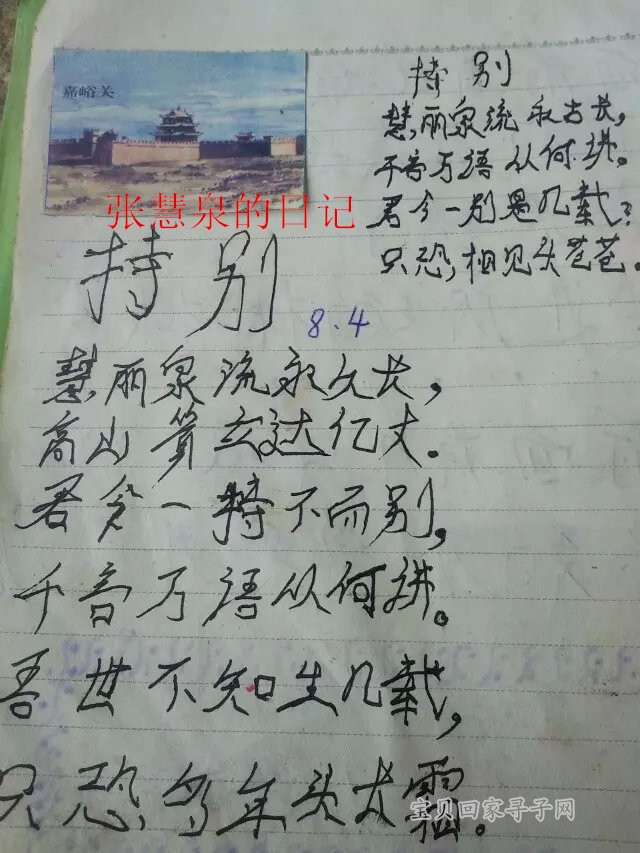 嘉峪关
张慧泉的日记
特别
慧丽泉流永古长,
千音万语从何讲,
君今一别是几载?
只恐,相见头苍苍。
特别
8.4
慧丽泉流永久长,
高山算云达亿丈.
君今一特不而别,
千音万语从何讲。
吾世不知生几载,
只恐,多年头长霜。
宝贝回家寻子网